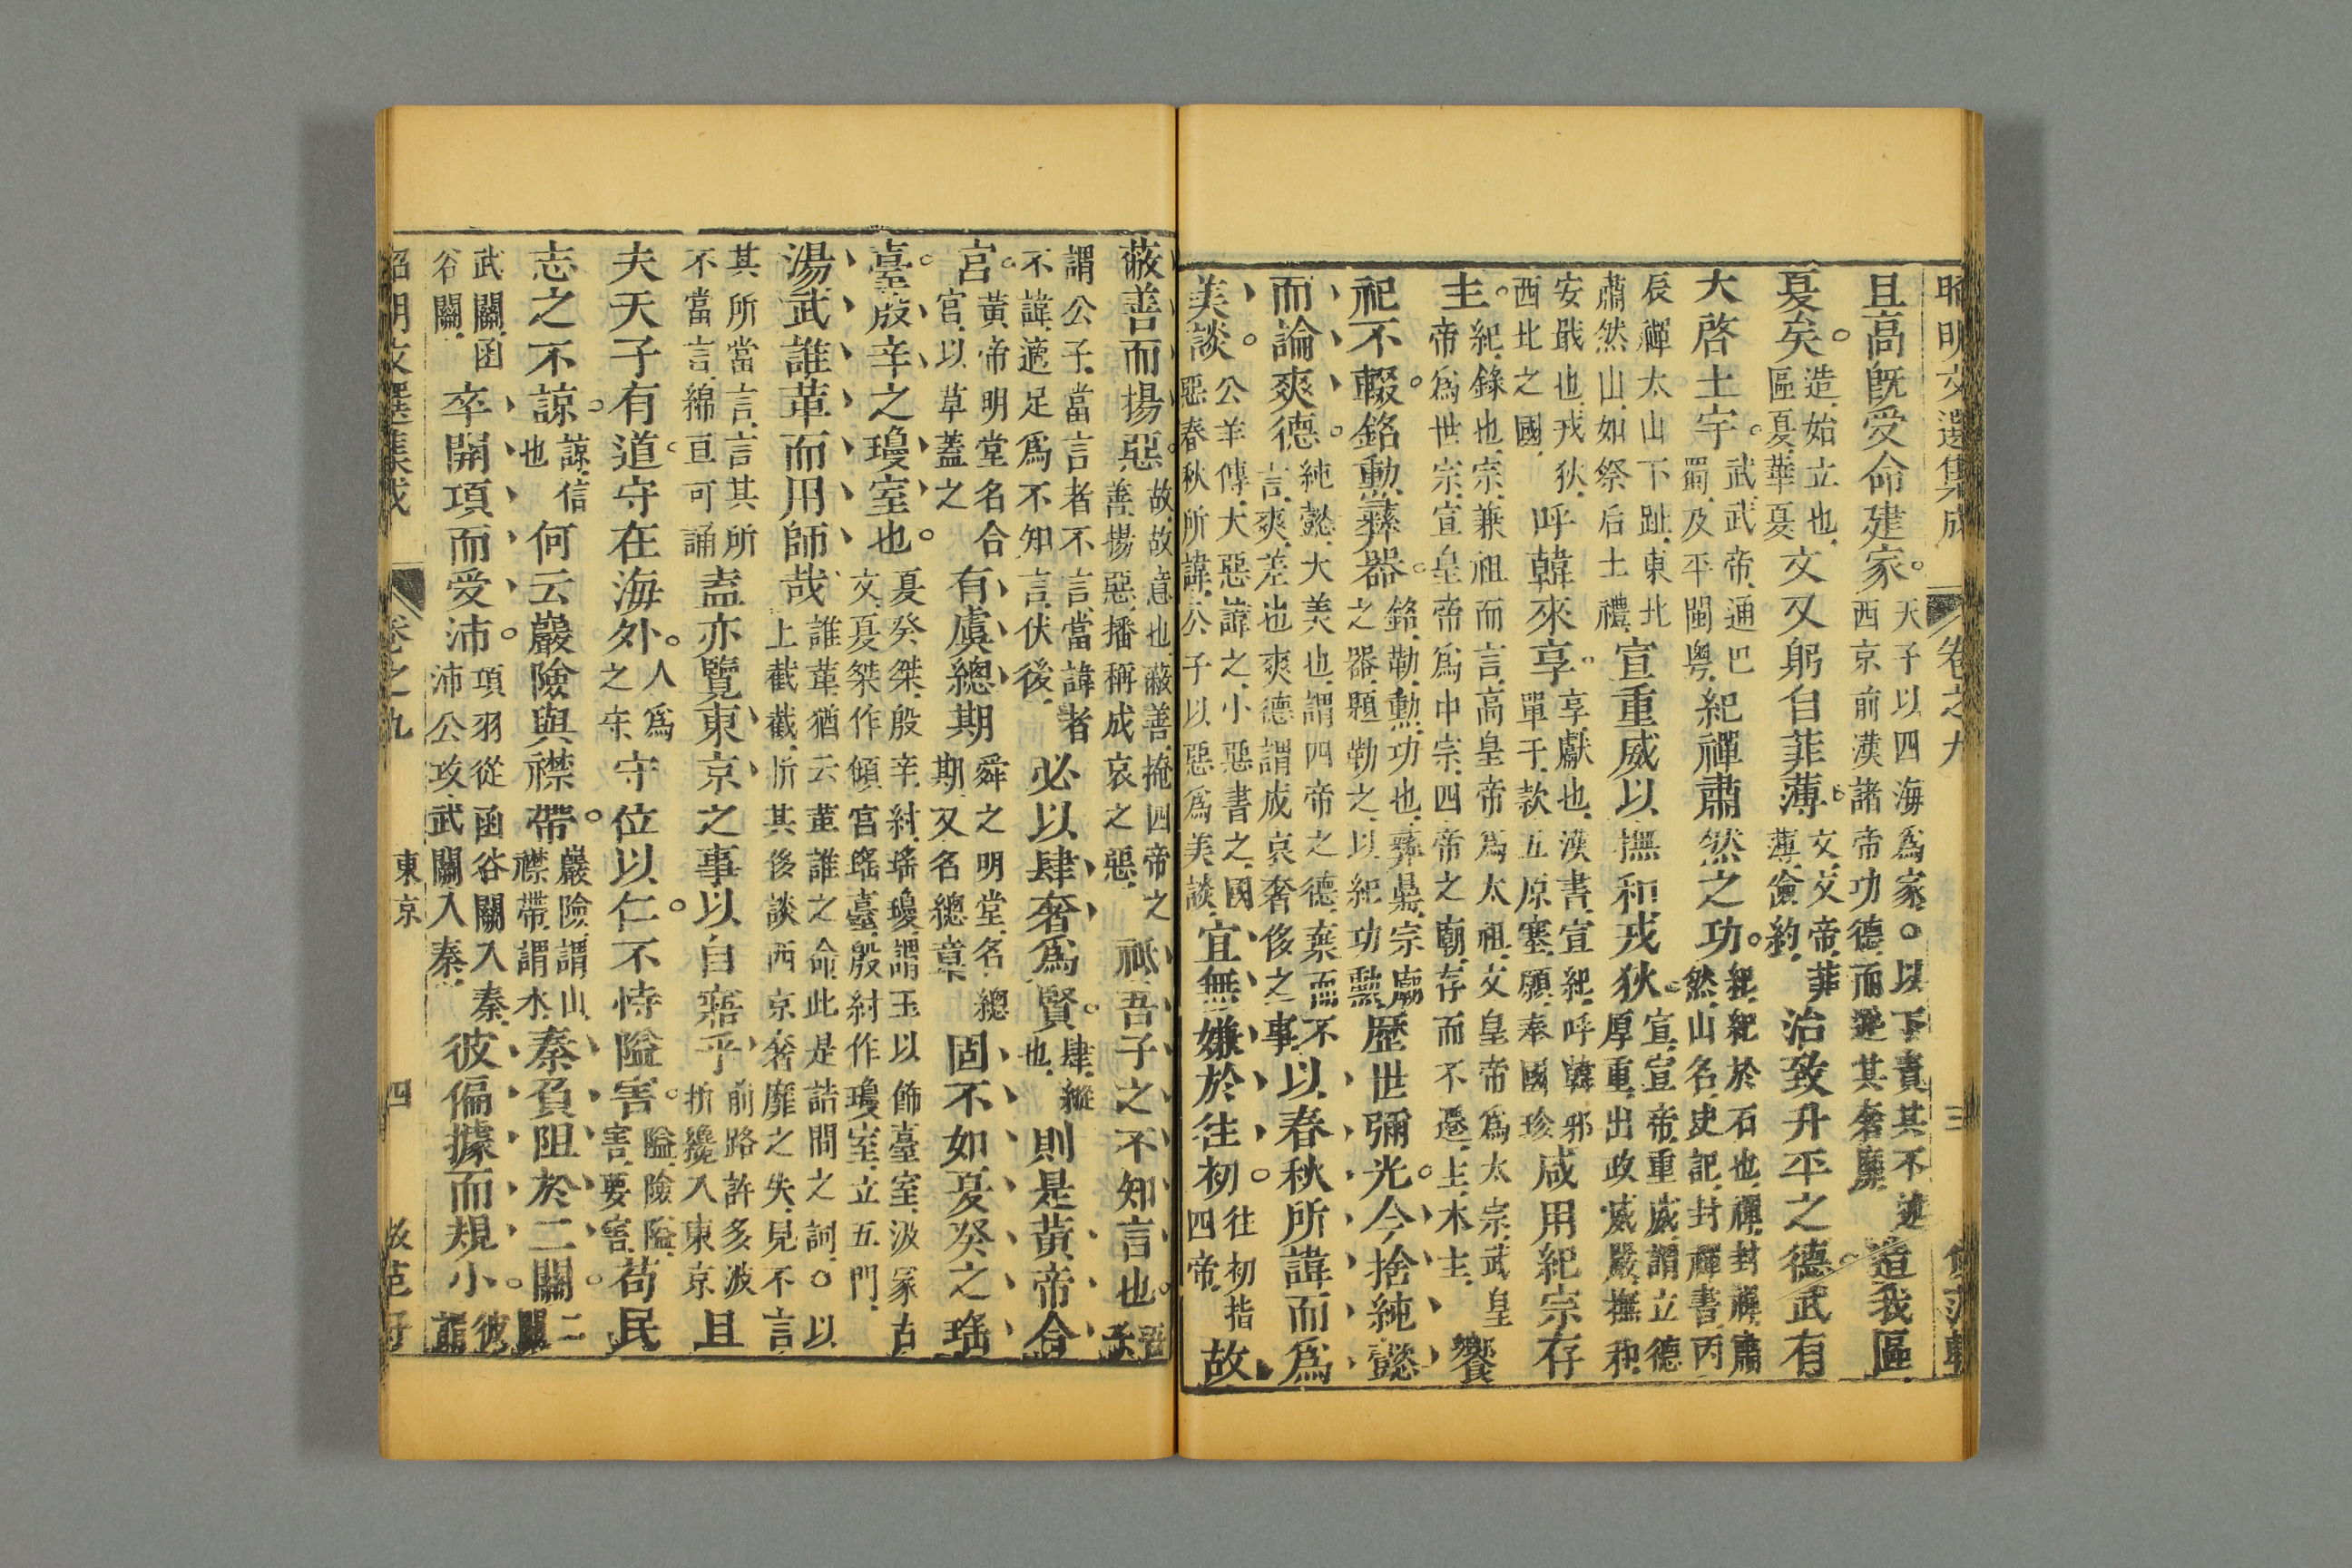 昭明文選集成 卷之九 三
且高旣受命建家。天子以四海爲家。○以下責其不述西京前漢諸帝功德而述其奢靡造我區
夏矣。造始立也區夏華夏文又躬自菲薄文文帝菲薄儉約治致升平之德。武有
大啓土宇。武武帝通巴蜀及平閩粵紀禪肅然之功。紀紀於石也禪封禪肅然山名史記封禪書丙
辰禪太山下趾東北肅然山如祭后土禮宣重威以撫和戎狄。宣宣帝重威謂立德厚重出政威嚴撫和
安戢也戎狄西北之國呼韓來享。享獻也漢書宣紀呼韓邪單于款五原塞願奉國珍咸用紀宗存
主。紀錄也宗兼祖而言高皇帝爲太祖文皇帝爲太宗武皇帝爲世宗宣皇帝爲中宗四帝之廟存而不遷主木主饗
祀不輟。銘勳彝器。銘勒勳功也彝鼎宗廟之器題勒之以紀功勳歷世彌光。今捨純懿
而論爽德。純懿大美也謂四帝之德棄而不言爽差也爽德謂成哀奢侈之事以春秋所諱而爲
美談。公羊傳大惡諱之小惡書之國惡春秋所諱公子以惡爲美談宜無嫌於往初。往初指四帝故
蔽善而揚惡。故故意也蔽善掩四帝之善揚惡播稱成哀之惡祗吾子之不知言也。吾子
謂公子當言者不言當諱者不諱適足爲不知言伏後必以肆奢爲賢。肆縱也則是黃帝合
宮。黃帝明堂名合宮以草蓋之有虞總期舜之明堂名總期又名總章固不如夏癸之瑤
臺。殷辛之瓊室也。夏癸桀殷辛紂瑤瓊謂玉以飾臺室汲冢古文夏桀作傾宮瑤臺殷紂作瓊室立五門
湯武誰革而用師哉誰革猶云革誰之命此是詰問之詞○以上截截折其侈談西京奢靡之失見不言
其所當言言其所不當言綿亘可誦盍亦覽東京之事以自寤乎前路許多波折纔入東京且
夫天子有道。守在海外。人爲之守守位以仁。不恃隘害。隘險隘害要害苟民
志之不諒。諒信也何云巖險與襟帶。巖險謂山襟帶謂水秦負阻於二關。二關
武關函谷關卒開項而受沛。項羽從函谷關入秦沛公攻武關入秦彼偏據而規小。彼
昭明文選集成 卷之九 東京 四